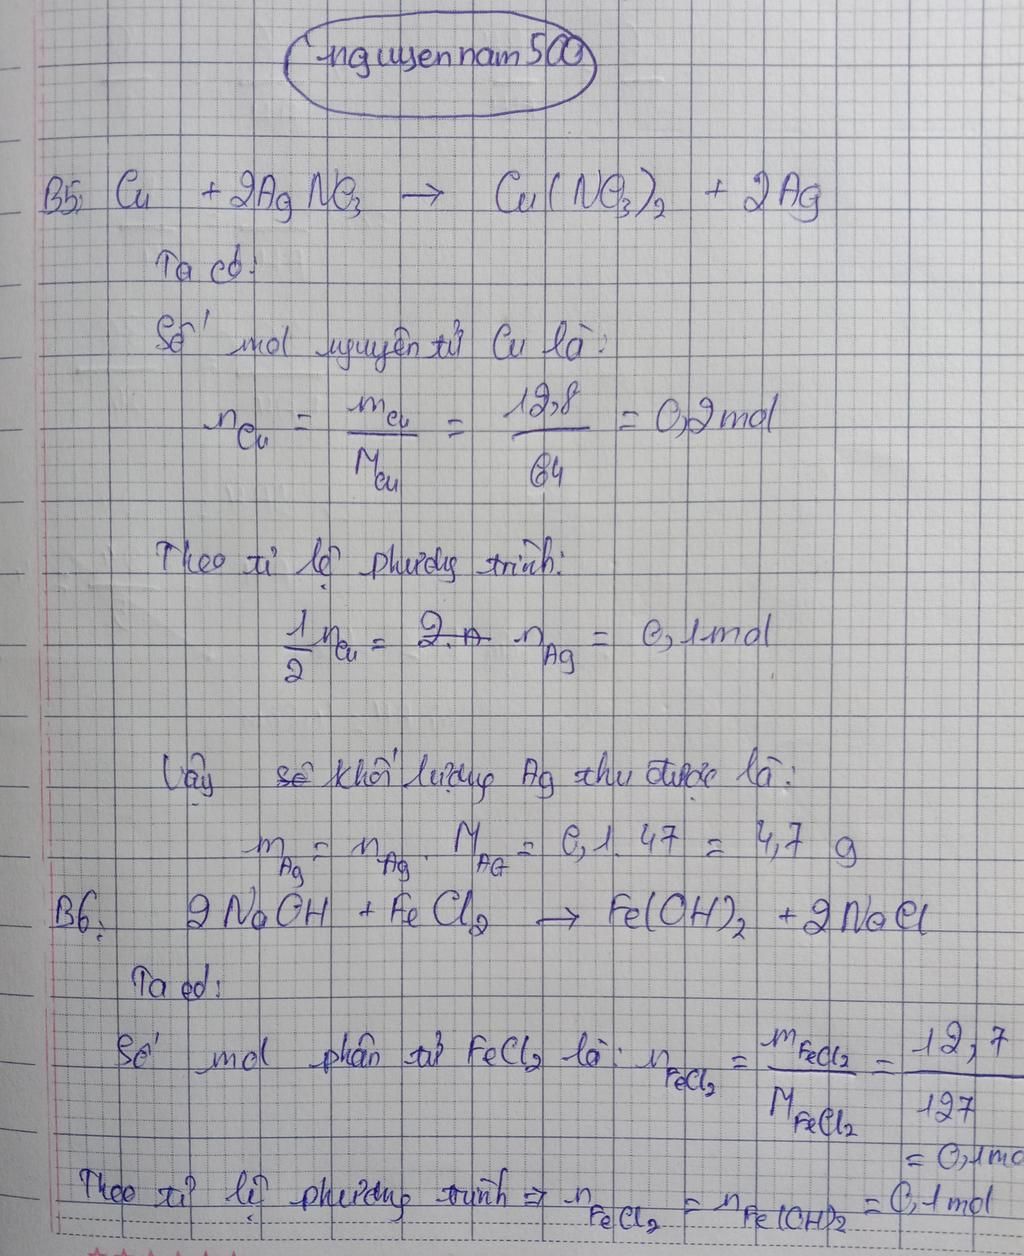 nguyennam500
B5: Cu + 2AgNO3 → Cu(NO3)2 + 2Ag
Ta có:
Số mol nguyên tử Cu là:
nCu = mCu/MCu = 12,8/64 = 0,2 mol
Theo tỉ lệ phương trình:
1/2 nCu = 2.n nAg = 0,1 mol
Vậy số khối lượng Ag thu được là:
mAg = nAg. MAG = 0,1. 47 = 4,7 g
B6: 2NaOH + FeCl2 → Fe(OH)2 + 2NaCl
Ta có:
Số mol phân tử FeCl2 là: nFeCl2 = mFeCl2/MFeCl2 = 12,7/127
= 0,1 mo
Theo tỉ lệ phương trình ⇒ nFeCl2 = nFe(OH)2 = 0,1 mol